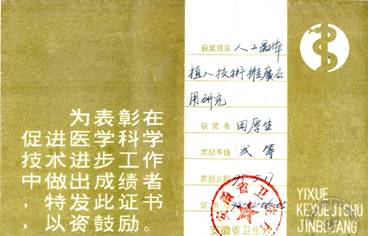 为表彰在
促进医学科学
技术进步工作
中做出成绩者
，特发此证书
，以资鼓励。
获奖项目 人工晶体
植入技術推廣应
用研究
获奖者 田厚生
奖励等级 贰等
奖励日期
安徽省卫生厅
YIXUE
KEXUEJISHU
JINBUJIANG